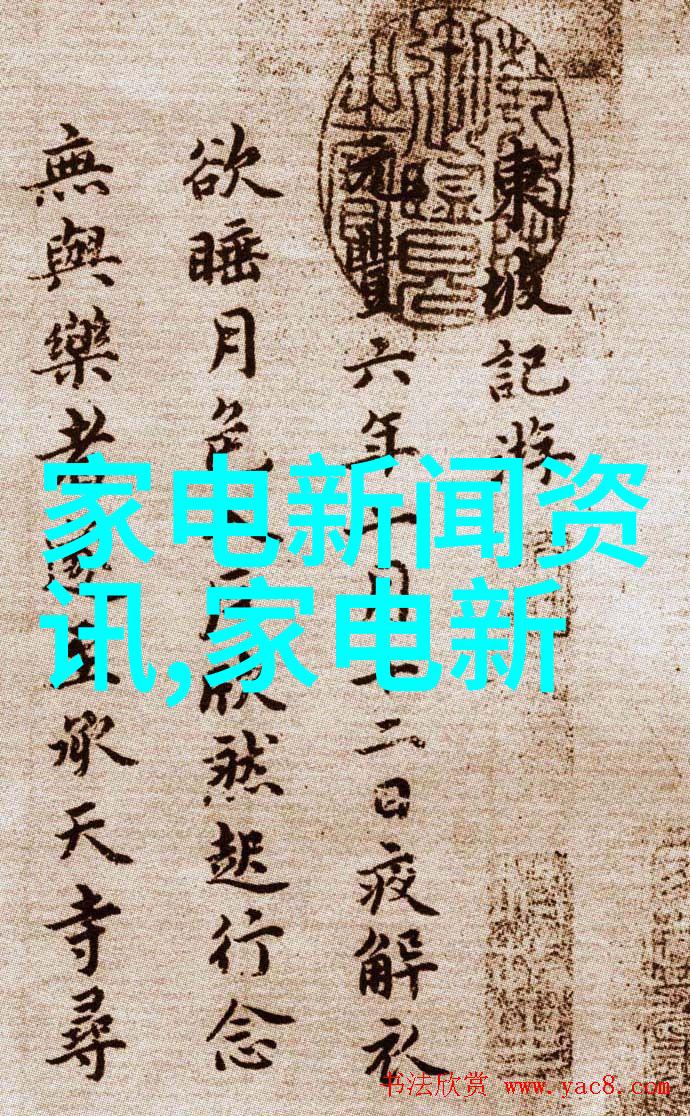 東坡記游
元豐六年十月十二日夜解衣
欲睡月色入戶欣然起行念
無與樂者遂至承天寺尋
家电新闻资
讯,家电新
书法欣赏 www.yac8.com